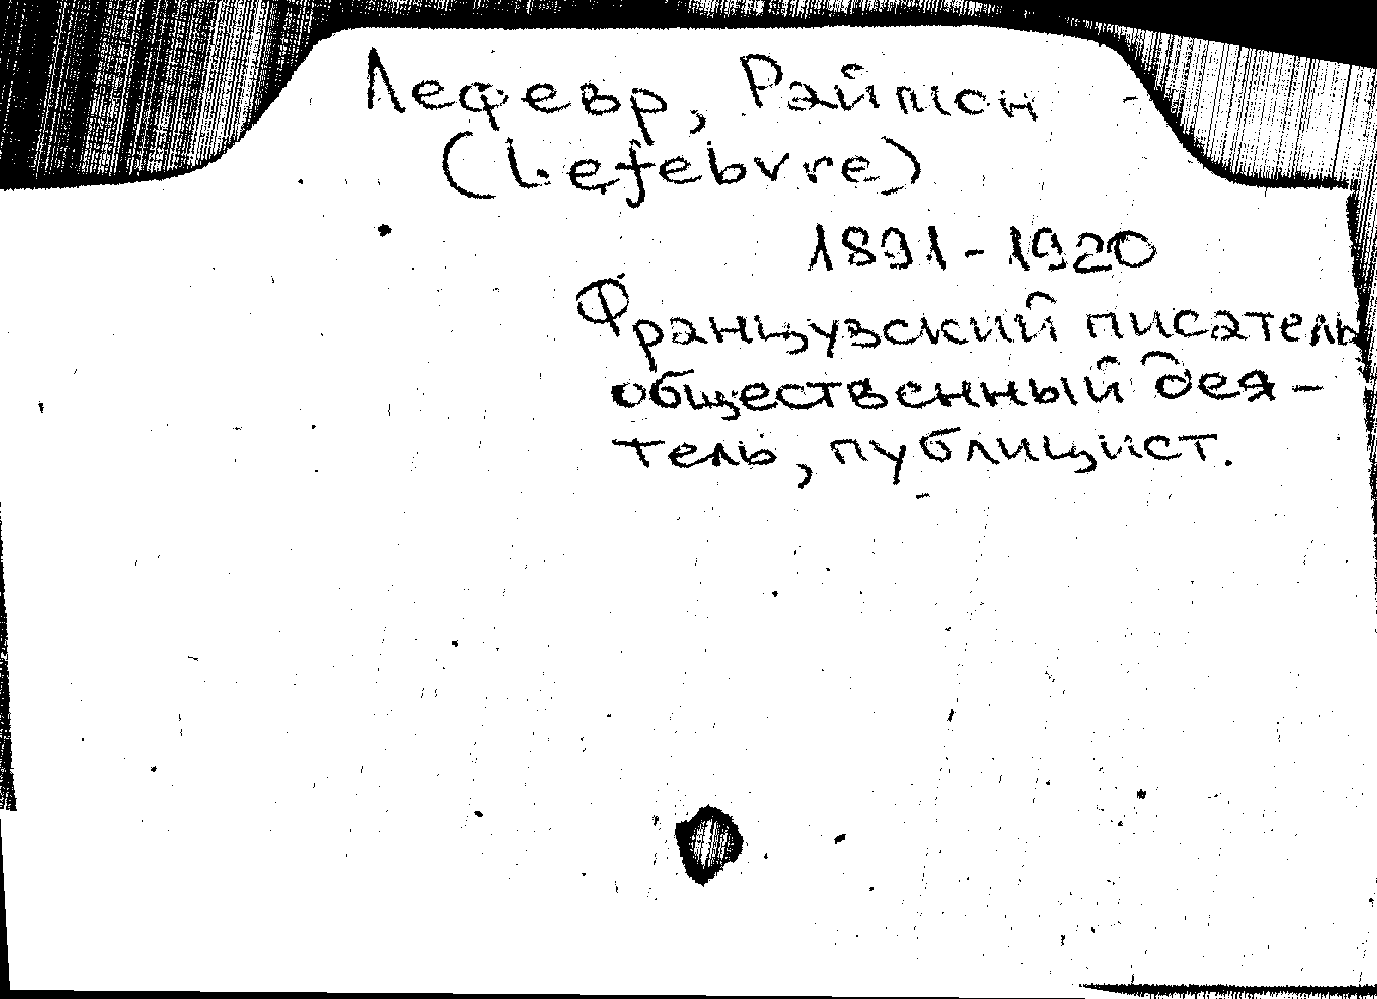 Лефевр, Раймон
(Lefebvre)
1891-1920
Французский писатель
общественный дея-
тель, публицист.